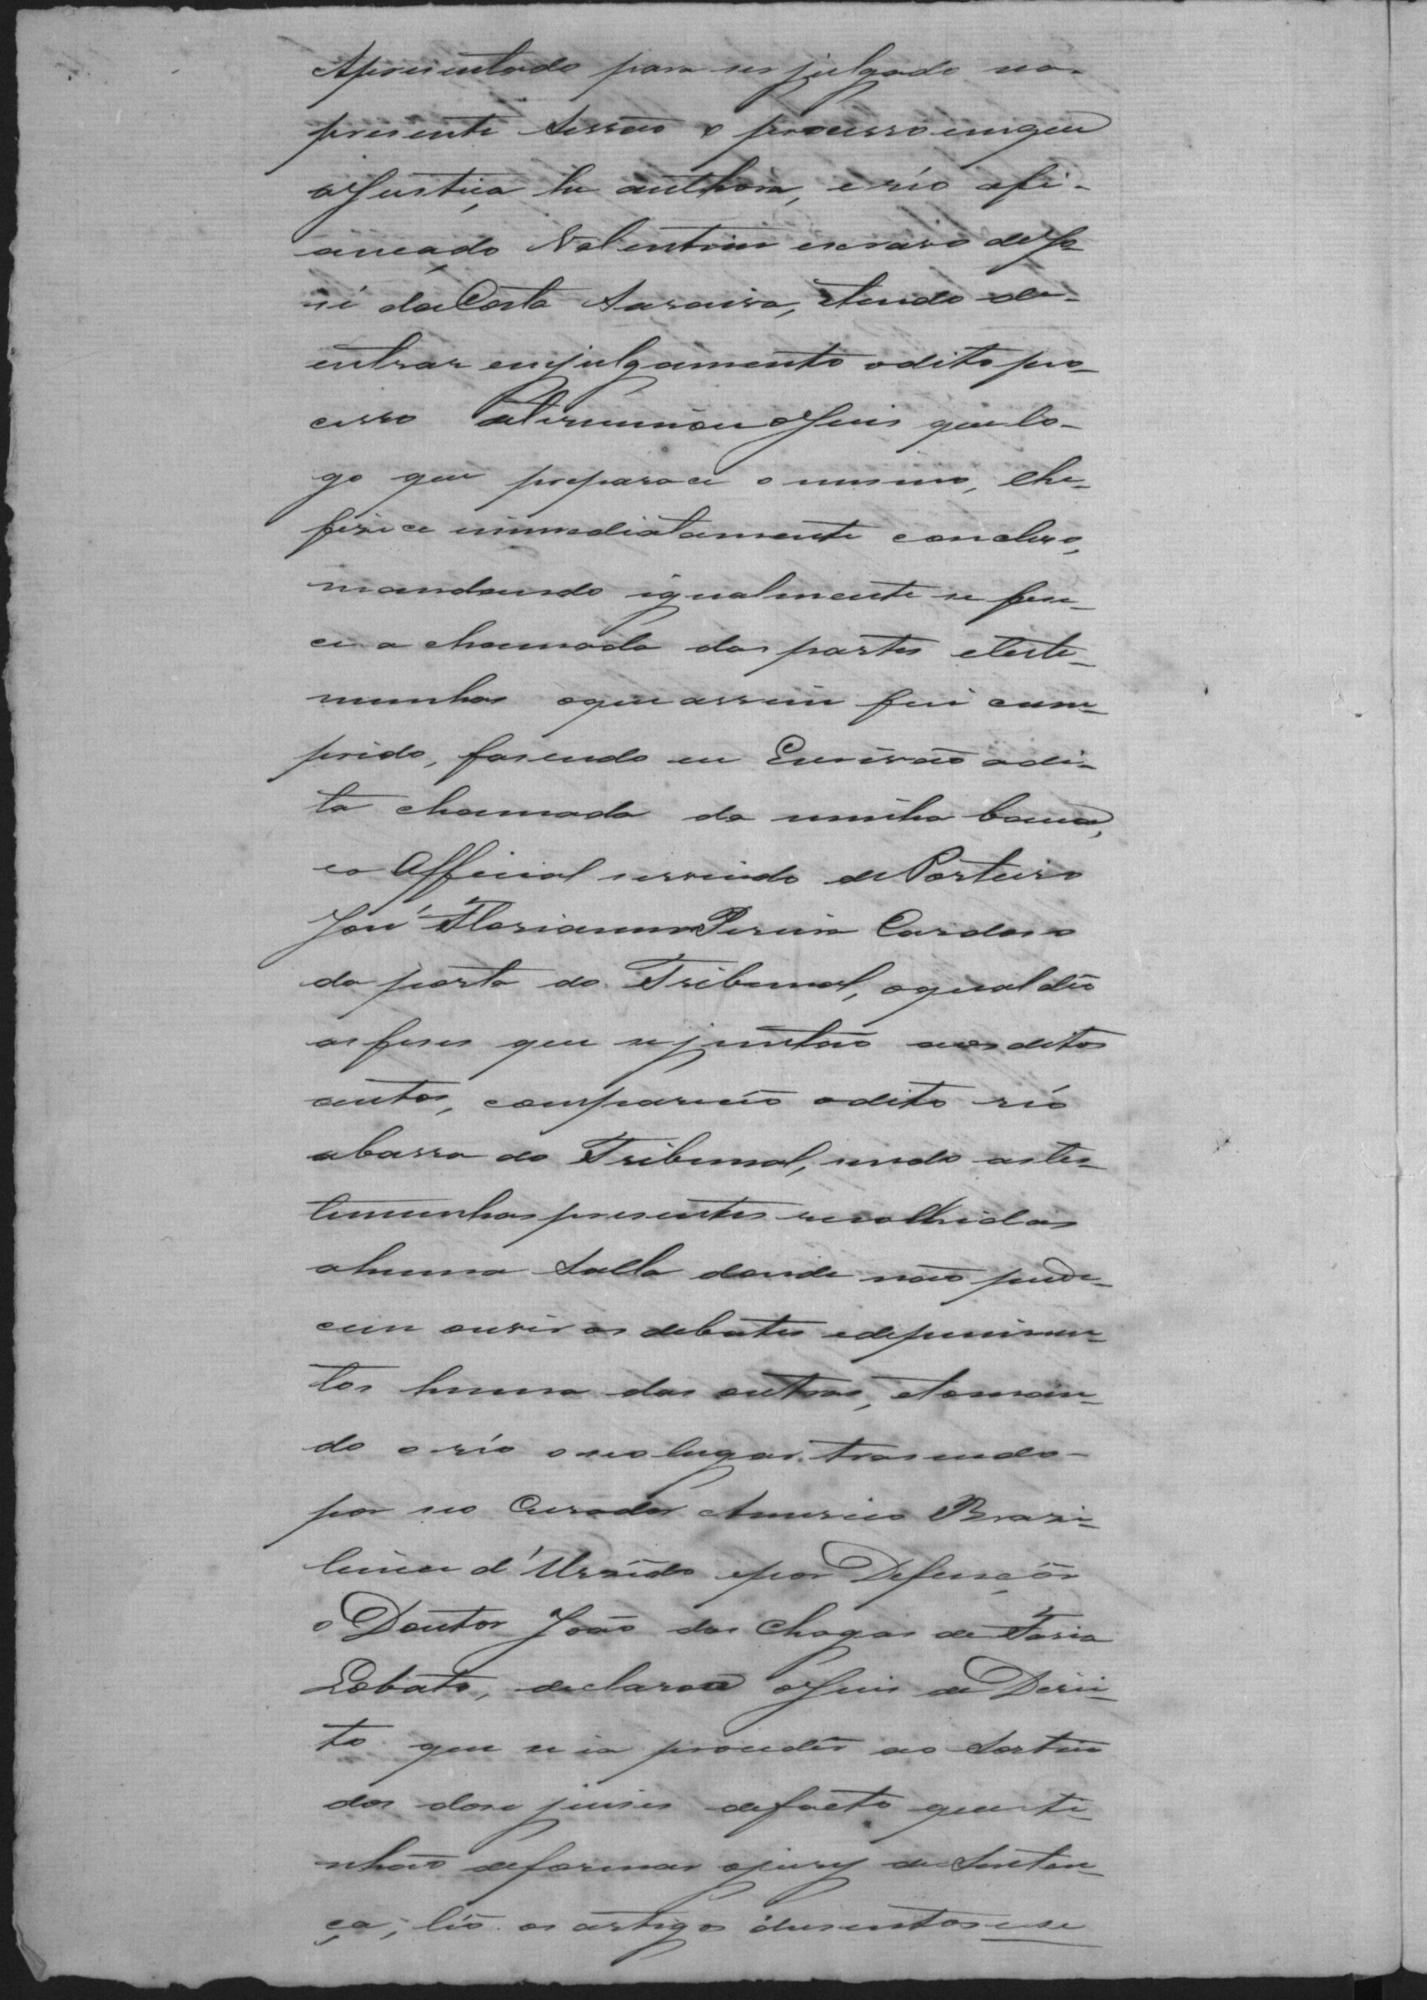 Apresentado para ser julgado na
presente Sessão o processo em que
a Justiça he authora, e réo afi-
ançado Valentim escravo de Jo-
sé da Costa Saraiva, e tendo de
entrar em julgamento o dito pro-
cesso determinou o Juis que lo-
go que preparace o mesmo, lhe
fisece immediatamente concluso,
mandando igualmente se fise-
ce a chamada das partes e teste-
munhas o que assim foi cum-
prido, fasendo eu Escrivão a di-
ta chamada da minha banca,
e o Official servindo de Porteiro
José Florianno Pereira Cardoso
da porta do Tribunal, o qual deo
as fees que se juntão aos ditos
autos, compareceo o dito réo
a barra do Tribunal, sendo as tes-
temunhas presentes recolhidas
a huma Salla donde não pode-
cem ouvir os debates e depoimen-
tos huma das outras, e toman-
do o réo o seo lugar trasendo
por seo Curador Americo Brazi-
liense d'Urzêdo e por Defensor
o Doutor João das Chagas de Faria
Lobato, declarou o Juis de Direi-
to que se ia proceder ao Sorteio
dos dose juises de facto que ti-
nhão de formar o jury de Senten-
ça, leo os artigos dusentos e se